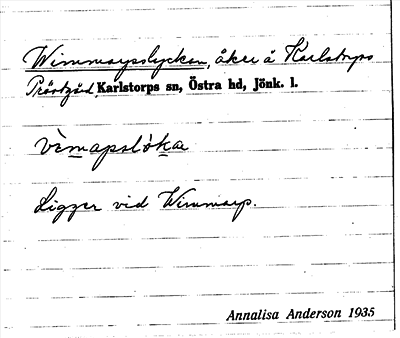 Wimmarpslyckan, åker å Karlstorps
Prästgård, Karlstorps sn, Östra hd, Jönk. l.
vèmapslók̲a
Ligger vid Wimmarp.
Annalisa Anderson 1935